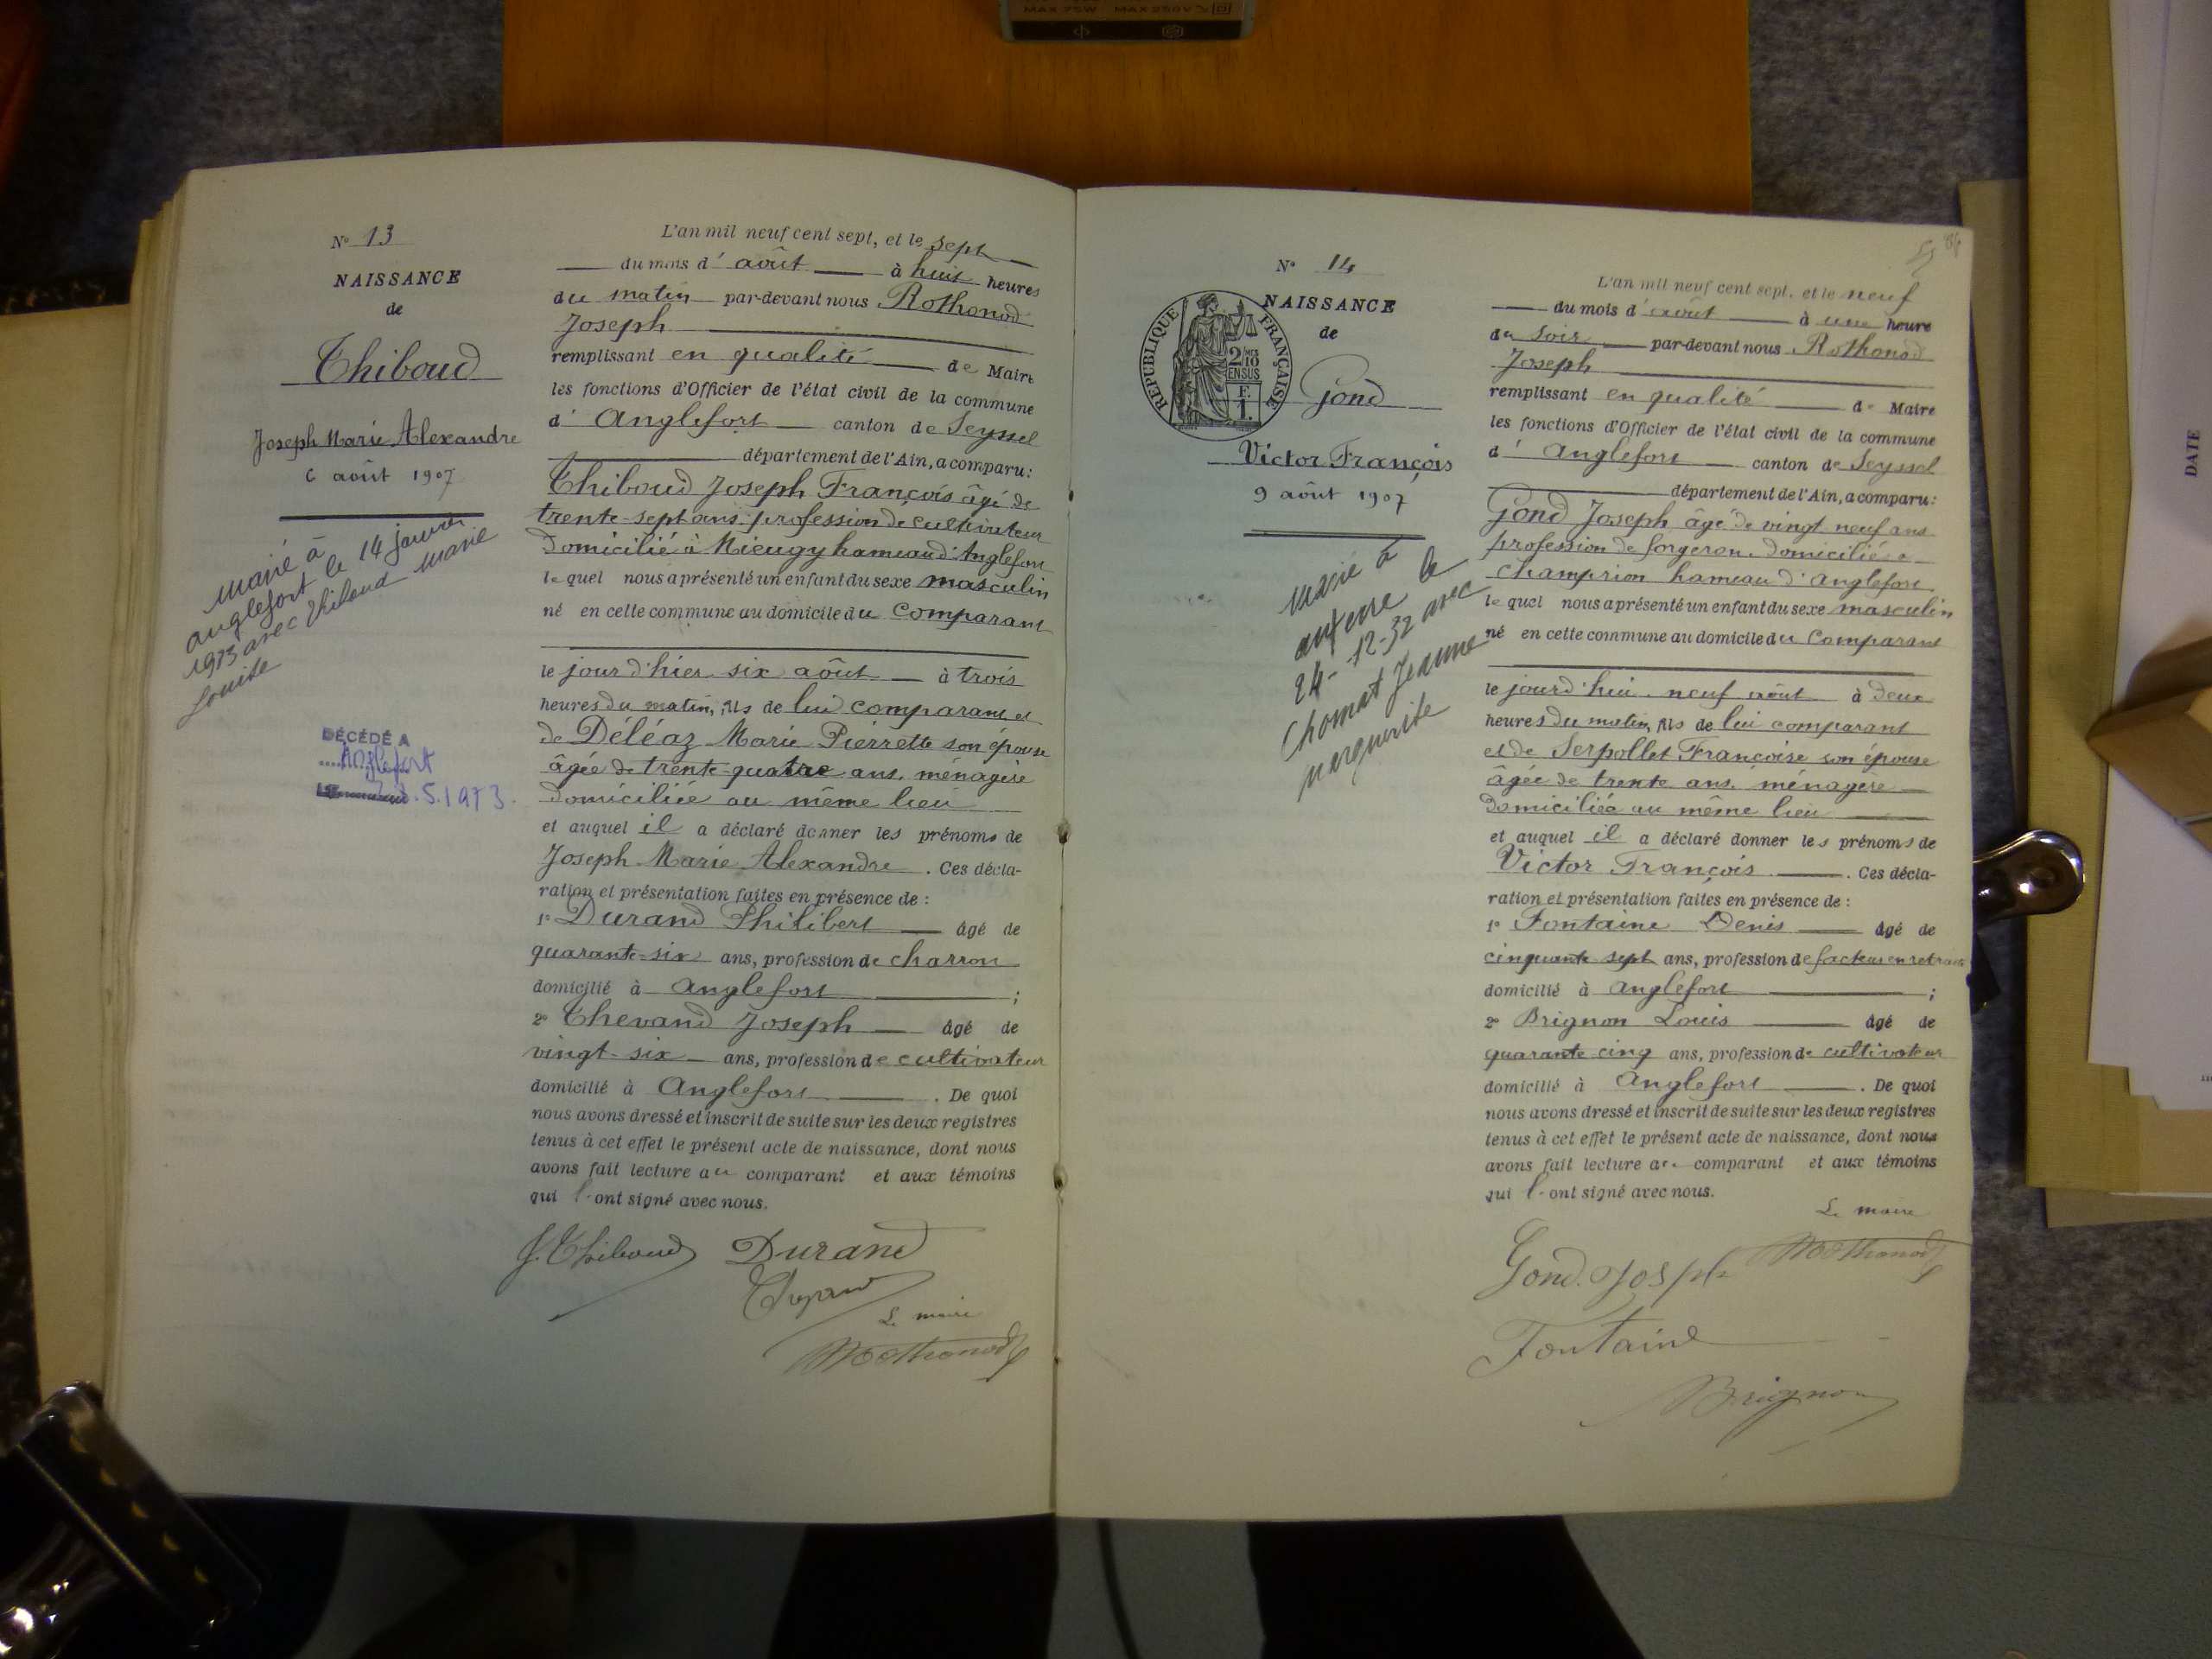 MAX 75W MAX 250V
N° 13
NAISSANCE
de
Thiboud
Joseph Marie Alexandre
6 août 1907
Marié à
anglefort le 14 janvier
avec Thiboud Marie
Louise
DÉCÉDÉ A
Anglefort
.5.1973.
L'an mil neuf cent sept, et le sept
du mois d'août à huit heures
du matin par-devant nous Rothonod
Joseph
remplissant en qualité de Maire
les fonctions d'Officier de l'état civil de la commune
d'Anglefort canton de Seyssel
département de l'Ain, a comparu:
Thiboud Joseph François âgé de
trente-sept ans profession de cultivateur
domicilié à Mieugy hameau d'Anglefort
lequel nous a présenté un enfant du sexe masculin
né en cette commune au domicile du comparant
le jour d'hier six août à trois
heures du matin, fils de lui comparant et
de Déléaz Marie Pierrette son épouse
âgée de trente-quatre ans, ménagère
domiciliée au même lieu
et auquel il a déclaré donner les prénoms de
Joseph Marie Alexandre. Ces décla-
ration et présentation faites en présence de :
1° Durand Philibert âgé de
quarante-six ans, profession de charron
domicilié à Anglefort ;
2° Thevand Joseph âgé de
vingt-six ans, profession de cultivateur
domicilié à Anglefort. De quoi
nous avons dressé et inscrit de suite sur les deux registres
tenus à cet effet le présent acte de naissance, dont nous
avons fait lecture au comparant et aux témoins
qui l'ont signé avec nous.
J. Thiboud Durand
Le maire
Rothonod
N° 14
NAISSANCE
de
RÉPUBLIQUE FRANÇAISE
2/10 EN SUS
F. 1.
Gond
Victor François
9 août 1907
Marié à
auxerre le
24-12-32 avec
Chomat Jeanne
marguerite
L'an mil neuf cent sept, et le neuf
du mois d'août à une heure
du soir par-devant nous Rothonod
Joseph
remplissant en qualité de Maire
les fonctions d'Officier de l'état civil de la commune
d'Anglefort canton de Seyssel
département de l'Ain, a comparu:
Gond Joseph âgé de vingt neuf ans
profession de forgeron domicilié à
champrion hameau d'anglefort
lequel nous a présenté un enfant du sexe masculin
né en cette commune au domicile du comparant
le jourd'hui neuf août à deux
heures du matin, fils de lui comparant
et de Serpollet Françoise son épouse
âgée de trente ans, ménagère
domiciliée au même lieu
et auquel il a déclaré donner les prénoms de
Victor François. Ces décla-
ration et présentation faites en présence de :
1° Fontaine Denis âgé de
cinquante sept ans, profession de facteur en retraite
domicilié à anglefort ;
2° Brignon Louis âgé de
quarante cinq ans, profession de cultivateur
domicilié à Anglefort. De quoi
nous avons dressé et inscrit de suite sur les deux registres
tenus à cet effet le présent acte de naissance, dont nous
avons fait lecture au comparant et aux témoins
qui l'ont signé avec nous.
Le maire
Gond Joseph Rothonod
Fontaine
Brignon
DATE